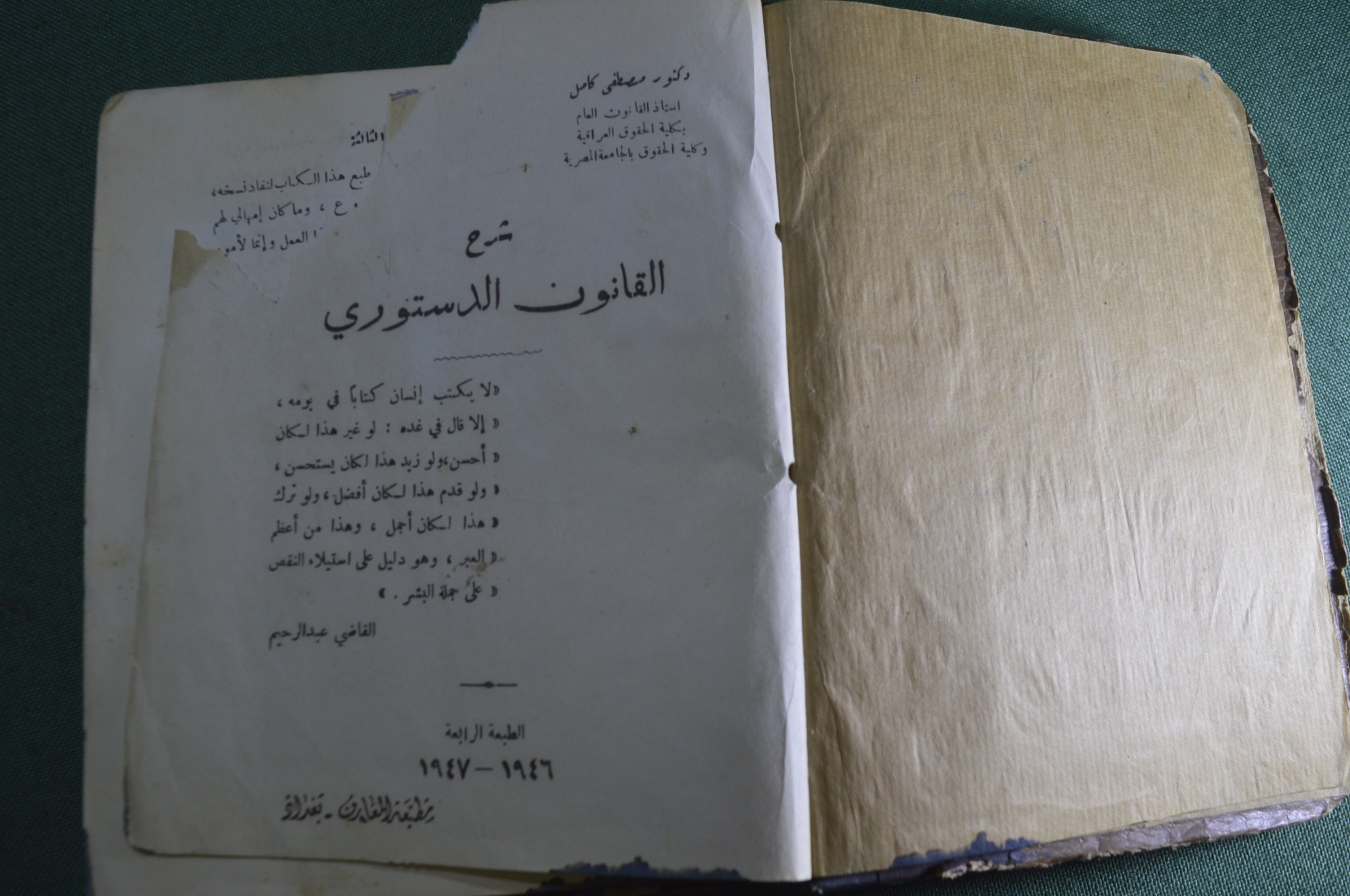 دكتور مصطفى كامل
استاذ القانون العام
بكلية الحقوق العراقية
وكلية الحقوق بالجامعة المصرية
شرح
القانون الدستوري
«لا يكتب إنسان كتاباً في يومه ،
« إلا قال في غده : لو غير هذا لكان
« أحسن،ولو زيد هذا لكان يستحسن ،
« ولو قدم هذا لكان أفضل ، ولو ترك
« هذا لكان أجمل ، وهذا من أعظم
« العبر ، وهو دليل على استيلاء النقص
« على جملة البشر . »
القاضي عبدالرحيم
الطبعة الرابعة
١٩٤٦ – ١٩٤٧
مطبعة المعارف - بغداد
الثالثة
طبع هذا الكتاب لنفاد نسخه،
وع ، وما كان إمهالي لهم
العمل وإنما لأمو